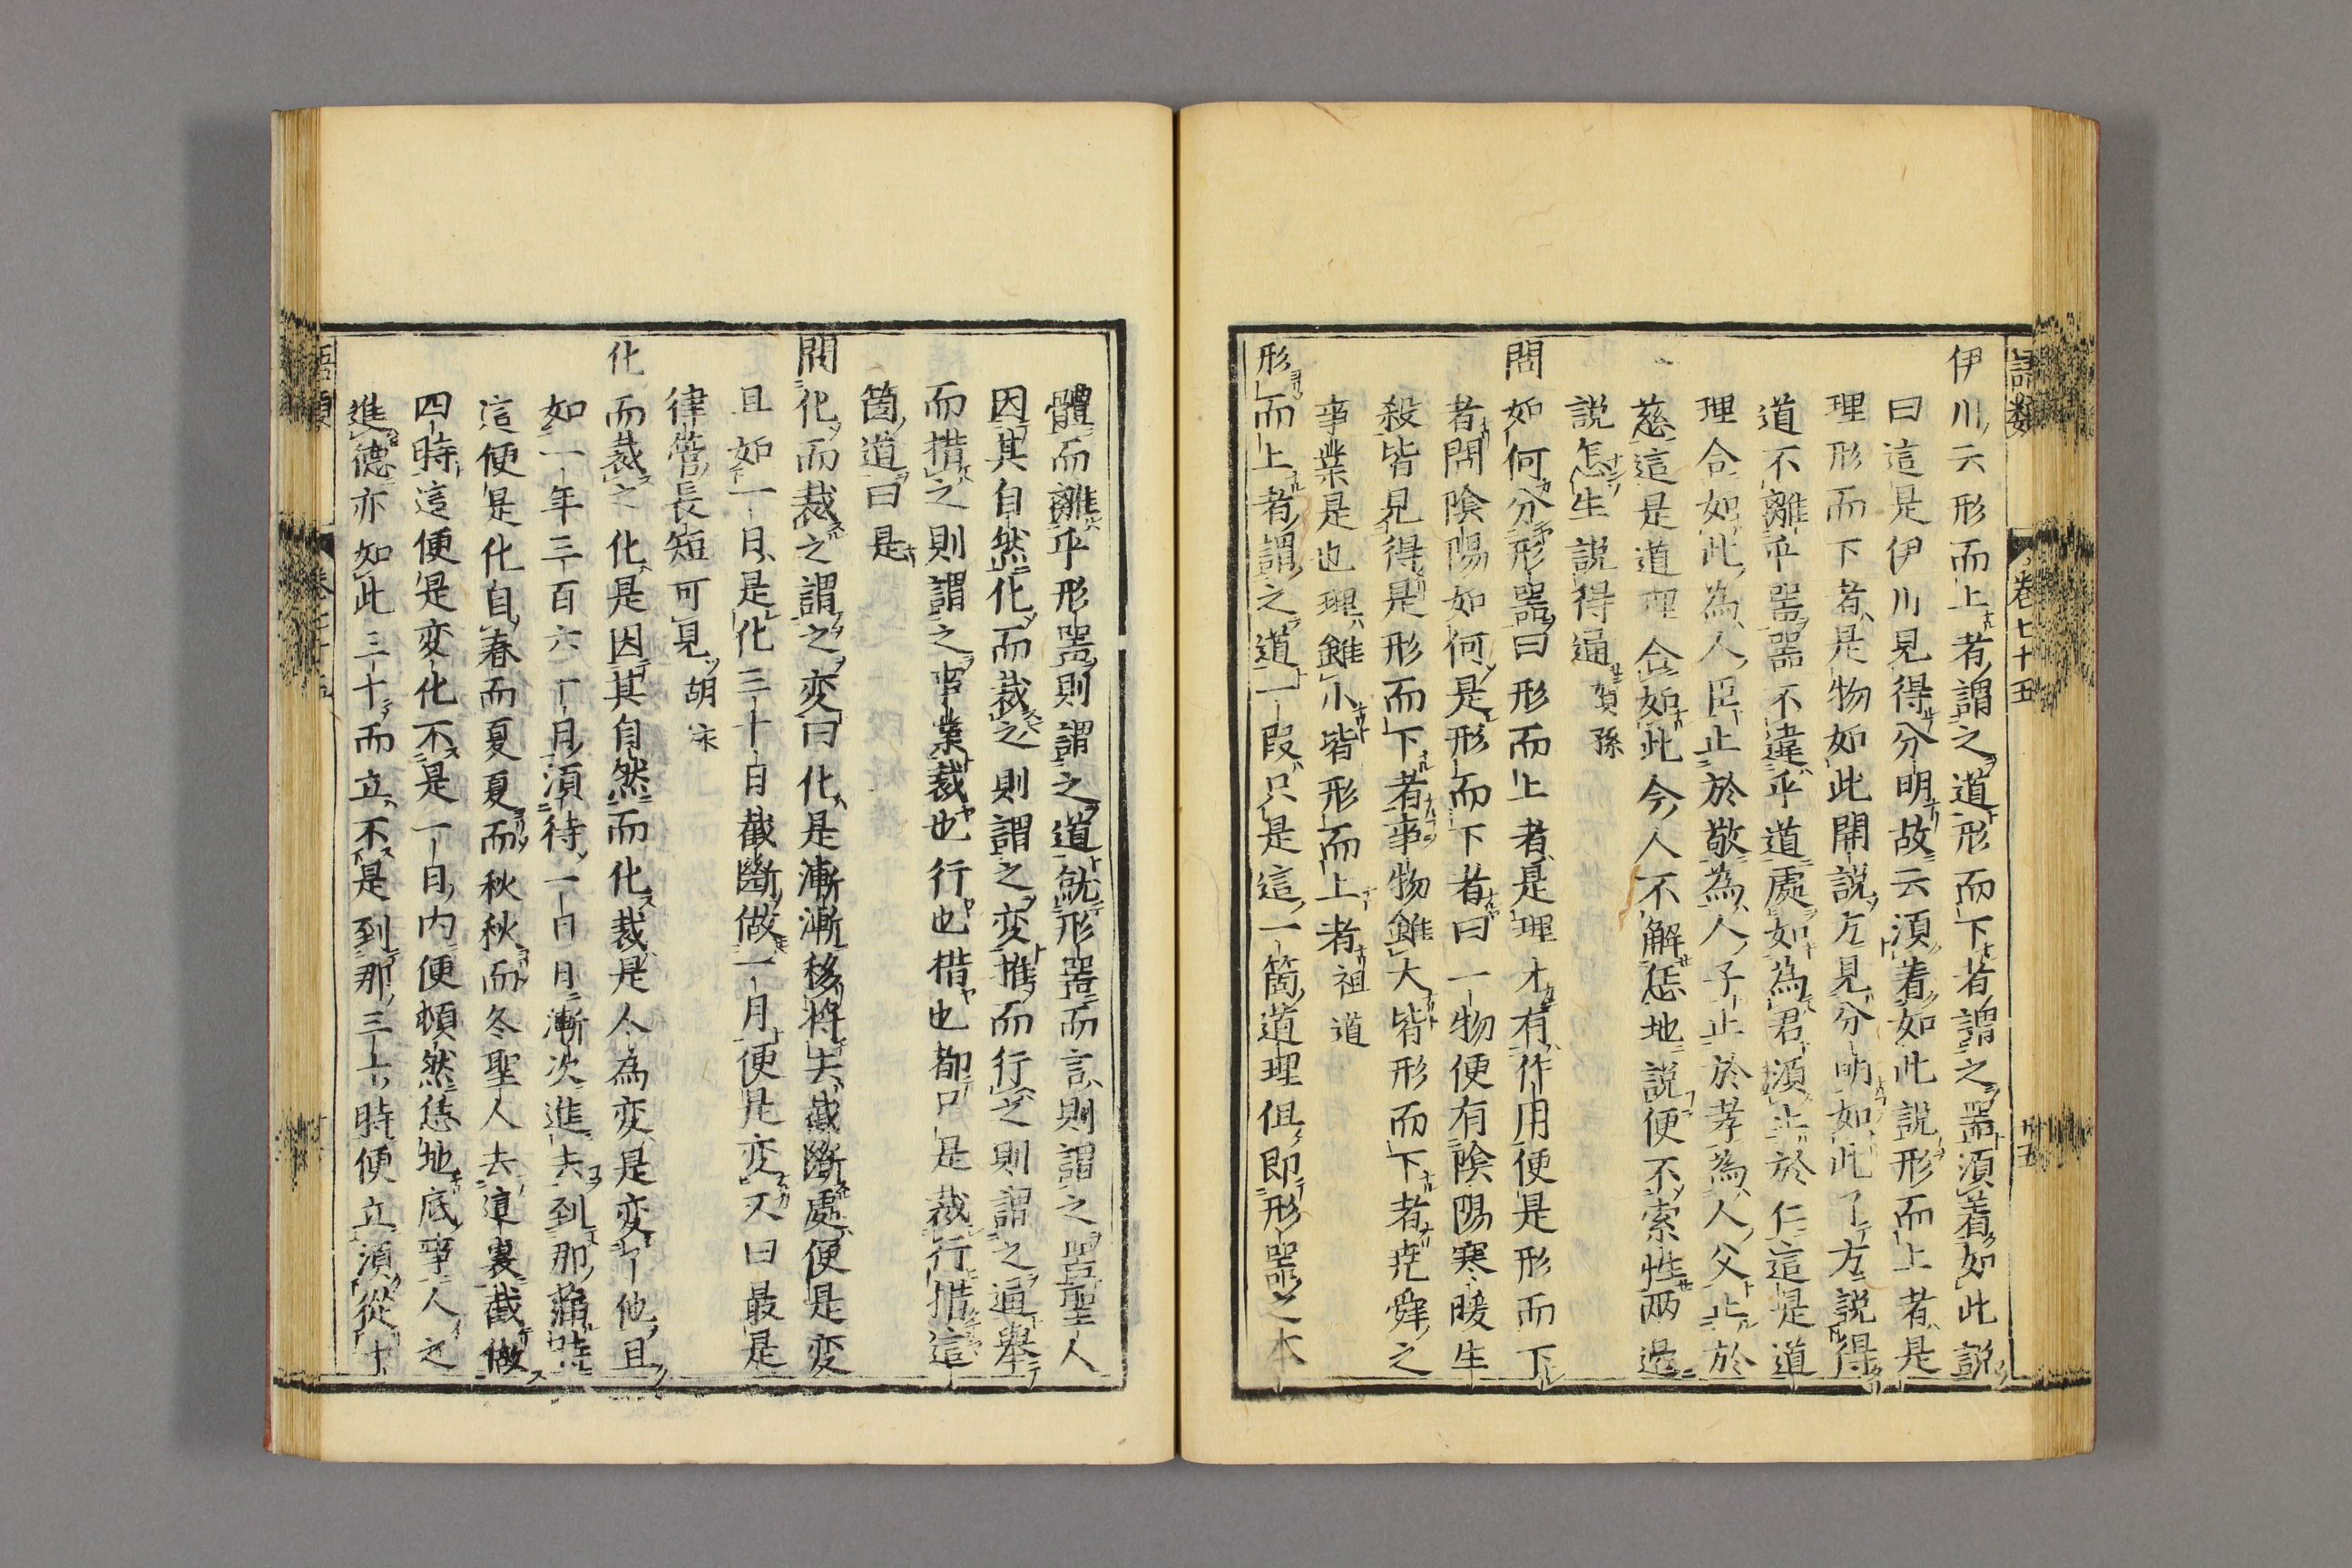 語類 卷七十五 卅五
伊川云形而上者謂之道形而下者謂之器須著如此說
曰這是伊川見得分明故云須着如此說形而上者是
理形而下者是物如此開說方見分明如此了方說得
道不離乎器器不違乎道處如為君須止於仁這是道
理合如此為人臣止於敬為人子止於孝為人父止於
慈這是道理合如此今人不解恁地說便不索性兩邊
說怎生說得通賀孫
問如何分形器曰形而上者是理才有作用便是形而下
者問陰陽如何是形而下者曰一物便有陰陽寒暖生
殺皆見得是形而下者事物雖大皆形而下者堯舜之
事業是也理雖小皆形而上者祖道
形而上者謂之道一段只是這一箇道理但即形器之本
體而離乎形器則謂之道就形器而言則謂之器聖人
因其自然化而裁之則謂之変推而行之則謂之通舉
而措之則謂之事業裁也行也措也都只是裁行措這
箇道曰是
問化而裁之謂之変曰化是漸漸移將去截斷處便是変
且如一日是化三十日截斷做一月便是変又曰最是
律管長短可見胡泳
化而裁之化是因其自然而化裁是人為変是変了他且
如一年三百六十日須待一日日漸次進去到那滿時
這便是化自春而夏夏而秋秋而冬聖人去這裏截做
四時這便是変化不是一日內便頓然恁地底事人之
進德亦如此三十而立不是到那三十時便立須從十
語類 卷七十五